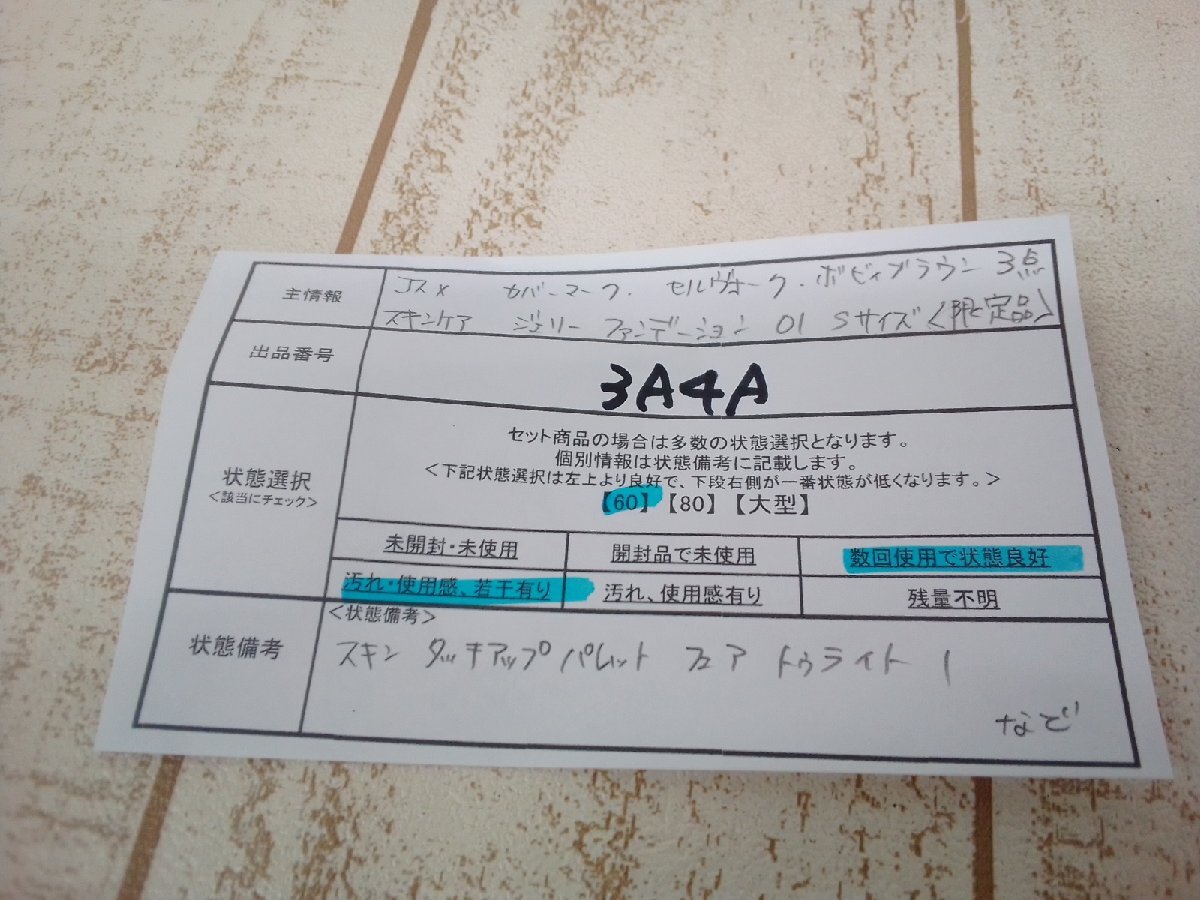 主情報
コスメ カバーマーク. セルヴォーク. ボビィブラウン 3点
スキンケア ジェリー ファンデーション 01 Sサイズ<限定品>
出品番号
3A4A
状態選択
<該当にチェック>
セット商品の場合は多数の状態選択となります。
個別情報は状態備考に記載します。
<下記状態選択は左上より良好で、下段右側が一番状態が低くなります。>
【60】【80】【大型】
未開封・未使用 開封品で未使用 数回使用で状態良好
汚れ・使用感、若干有り 汚れ、使用感有り 残量不明
状態備考
<状態備考>
スキン タッチアップパレット フェア トゥライト 1
など